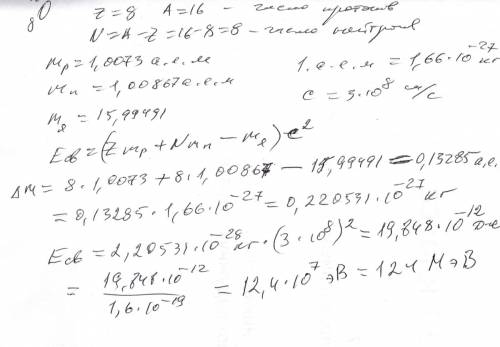 ₈O Z=8 A=16 – число протонов
N=A-Z=16-8=8 – число нейтронов
mp=1,0073 а.е.м 1.а.е.м=1,66·10⁻²⁷ кг
mn=1,00867 а.е.м c=3·10⁸ м/с
mя=15,99491
Eсв=(Zmp+Nmn-mя)c²
Δm=8·1,0073+8·1,00867-15,99491=0,13285 а.е.
=0,13285·1,66·10⁻²⁷=0,220531·10⁻²⁷ кг
Eсв=2,20531·10⁻²⁸ кг·(3·10⁸)²=19,848·10⁻¹² Дж
=19,848·10⁻¹²/1,6·10⁻¹⁹=12,4·10⁷ эВ=124 МэВ